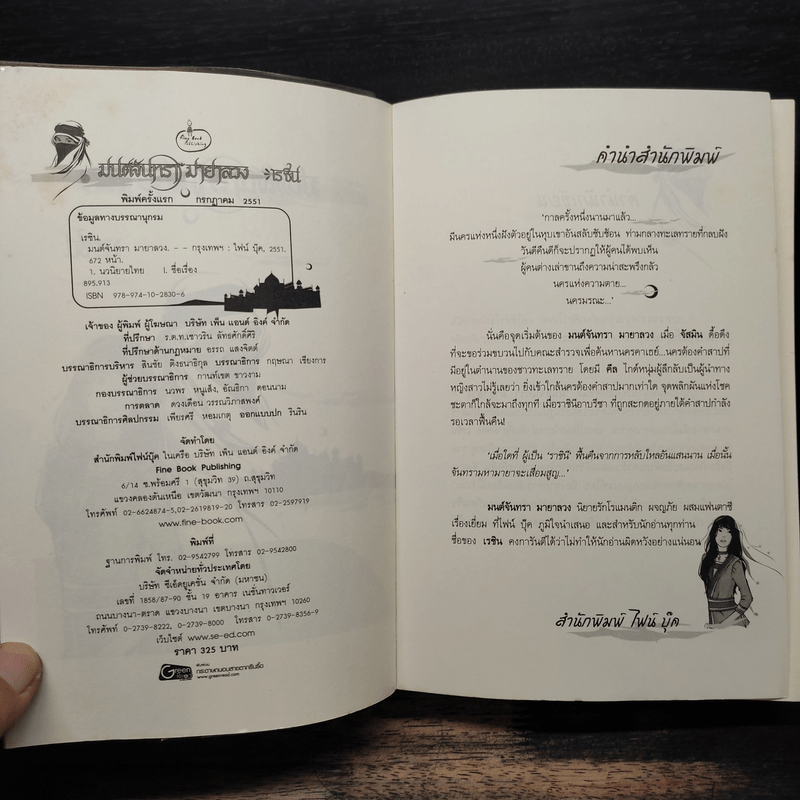 Fine Book
Publishing
มนต์จันทรา มายาลวง เรซิน
พิมพ์ครั้งแรก กรกฎาคม 2551
ข้อมูลทางบรรณานุกรม
เรซิน.
มนต์จันทรา มายาลวง. -- กรุงเทพฯ : ไฟน์ บุ๊ค, 2551.
672 หน้า.
1. นวนิยายไทย I. ชื่อเรื่อง
895.913
ISBN 978-974-10-2830-6
เจ้าของ ผู้พิมพ์ ผู้โฆษณา บริษัท เพ็น แอนด์ อิงค์ จำกัด
ที่ปรึกษา ร.ต.ท.เชาวริน ลัทธศักดิ์ศิริ
ที่ปรึกษาด้านกฎหมาย อรรถ แสงจิตต์
บรรณาธิการบริหาร สินชัย ติงธนาธิกุล บรรณาธิการ กฤษณา เชียงการ
ผู้ช่วยบรรณาธิการ กานท์เขต ขาวงาม
กองบรรณาธิการ นวพร หนูเส็ง, อัณธิกา ดอนนาม
การตลาด ดวงเดือน วรรณวิภาสพงศ์
บรรณาธิการศิลปกรรม เพียรศรี หอมเกตุ ออกแบบปก รินริน
จัดทำโดย
สำนักพิมพ์ไฟน์บุ๊ค ในเครือ บริษัท เพ็น แอนด์ อิงค์ จำกัด
Fine Book Publishing
6/14 ซ.พร้อมศรี 1 (สุขุมวิท 39) ถ.สุขุมวิท
แขวงคลองตันเหนือ เขตวัฒนา กรุงเทพฯ 10110
โทรศัพท์ 02-6624874-5,02-2619819-20 โทรสาร 02-2597919
www.fine-book.com
พิมพ์ที่
ฐานการพิมพ์ โทร. 02-9542799 โทรสาร 02-9542800
จัดจำหน่ายทั่วประเทศโดย
บริษัท ซีเอ็ดยูเคชั่น จำกัด (มหาชน)
เลขที่ 1858/87-90 ชั้น 19 อาคาร เนชั่นทาวเวอร์
ถนนบางนา-ตราด แขวงบางนา เขตบางนา กรุงเทพฯ 10260
โทรศัพท์ 0-2739-8222, 0-2739-8000 โทรสาร 0-2739-8356-9
เว็บไซต์ www.se-ed.com
ราคา 325 บาท
Green
กระดาษถนอมสายตากรีนรี้ด
www.greenread.com
คำนำสำนักพิมพ์
'กาลครั้งหนึ่งนานมาแล้ว...
มีนครแห่งหนึ่งฝังตัวอยู่ในหุบเขาอันสลับซับซ้อน ท่ามกลางทะเลทรายที่กลบฝัง
วันดีคืนดีก็จะปรากฏให้ผู้คนได้พบเห็น
ผู้คนต่างเล่าขานถึงความน่าสะพรึงกลัว
นครแห่งความตาย...
นครมรณะ...'
นั่นคือจุดเริ่มต้นของ มนต์จันทรา มายาลวง เมื่อ จัสมิน ดื้อดึง
ที่จะขอร่วมขบวนไปกับคณะสำรวจเพื่อค้นหานครคาเธย์...นครต้องคำสาปที่
มีอยู่ในตำนานของชาวทะเลทราย โดยมี คีล ไกด์หนุ่มผู้ลึกลับเป็นผู้นำทาง
หญิงสาวไม่รู้เลยว่า ยิ่งเข้าใกล้นครต้องคำสาปมากเท่าใด จุดพลิกผันแห่งโชค
ชะตาก็ใกล้จะมาถึงทุกที เมื่อราชินีอาบรีซา ที่ถูกสะกดอยู่ภายใต้คำสาปกำลัง
รอเวลาฟื้นคืน!
'เมื่อใดที่ ผู้เป็น 'ราชินี' ฟื้นคืนจากการหลับใหลอันแสนนาน เมื่อนั้น
จันทรามหามายาจะเสื่อมสูญ...'
มนต์จันทรา มายาลวง นิยายรักโรแมนติก ผจญภัย ผสมแฟนตาซี
เรื่องเยี่ยม ที่ไฟน์ บุ๊ค ภูมิใจนำเสนอ และสำหรับนักอ่านทุกท่าน
ชื่อของ เรซิน คงการันตีได้ว่าไม่ทำให้นักอ่านผิดหวังอย่างแน่นอน
สำนักพิมพ์ ไฟน์ บุ๊ค